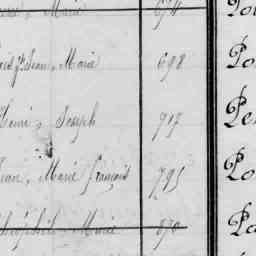 Marie 674
Jean, Marie 698 Po
Henri, Joseph 717 Pe
Jean, Marie françois 795 Po
Théophile Marie 870 Pa